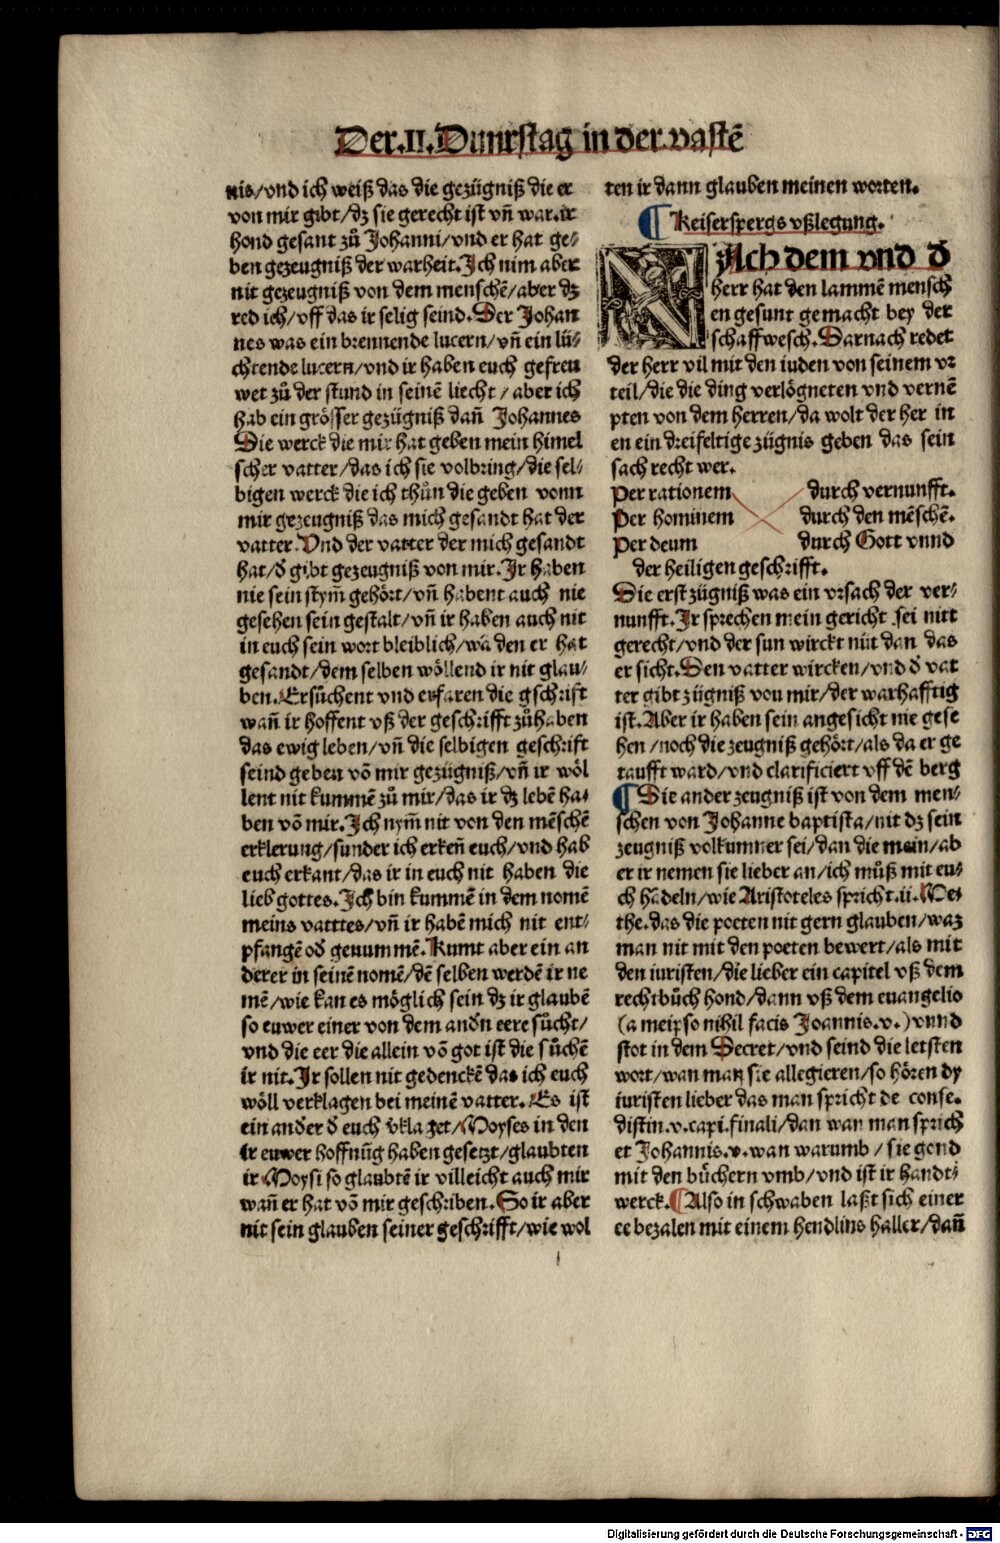 Der.II.Dunrstag in der vastē
nis/vnd ich weiß das die gezügniß die er
von mir gibt/dz sie gerecht ist vñ war.ir
hond gesant zů Johanni/vnd er hat ge-
ben gezeugniß der warheit.Ich nim aber
nit gezeugniß von dem menschē/aber dz
red ich/vff das ir selig seind.Der Johan
nes was ein brennende lucern/vñ ein lü-
chtende lucern/vnd ir haben euch gefreu
wet zů der stund in seinē liecht/aber ich
hab ein grösser gezügniß dañ Johannes
Die werck die mir hat geben mein himel
scher vatter/das ich sie volbring/die sel-
bigen werck die ich thůn die geben vonn
mir gezeugniß das mich gesandt hat der
vatter.Vnd der vatter der mich gesandt
hat/d̄ gibt gezeugniß von mir.Ir haben
nie sein stym̄ gehört/vñ habent auch nie
gesehen sein gestalt/vñ ir haben auch nit
in euch sein wort bleiblich/wā den er hat
gesandt/dem selben wöllend ir nit glau-
ben.Ersůchent vnd erfaren die gschrift
wañ ir hoffent vß der geschrifft zůhaben
das ewig leben/vñ die selbigen geschrift
seind geben vō mir gezügniß/vñ ir wöl
lent nit kummē zů mir/das ir dz lebē ha-
ben vō mir.Ich nym̄ nit von den mēschē
erklerung/sunder ich erkeñ euch/vnd hab
euch erkant/das ir in euch nit haben die
lieb gottes.Ich bin kummē in dem nomē
meins vatttes/vñ ir habē mich nit ent-
pfangē od̄ genummē.Kumt aber ein an
derer in seinē nomē/dē selben werdē ir ne
mē/wie kan es möglich sein dz ir glaubē
so euwer einer von dem and̄n eere sůcht/
vnd die eer die allein vō got ist die sůchē
ir nit.Ir sollen nit gedenckē das ich euch
wöll verklagen bei meinē vatter.Es ist
ein and̄er d̄ euch v̄klaget/Moyses in den
ir euwer hoffnūg haben gesetzt/glaubten
ir Moysi so glaubtē ir villeicht auch mir
wañ er hat vō mir geschriben.So ir aber
nit sein glauben seiner geschrifft/wie wol
ten ir dann glauben meinen worten.
¶ Keiserspergs vßlegung.
NAch dem vnd d̄
herr hat den lammē mensch
en gesunt gemacht bey der
schaffwesch.Darnach redet
der herr vil mit den iuden von seinem vr
teil/die die ding verlögneten vnd vernē
pten von dem herren/da wolt der her in
en ein dreifeltige zügnis geben das sein
sach recht wer.
Per rationem durch vernunfft.
Per hominem durch den mēschē.
Per deum durch Gott vnnd
der heiligen geschrifft.
Die erst zügniß was ein vrsach der ver-
nunfft.Ir sprechen mein gericht sei nitt
gerecht/vnd der sun wirckt nüt dan das
er sicht.Den vatter wircken/vnd d̄ vat
ter gibt zügniß von mir/der warhafftig
ist.Aber ir haben sein angesicht nie gese
hen/noch die zeugniß gehört/als da er ge
taufft ward/vnd clarificiert vff dē berg
¶ Die ander zeugniß ist von dem men-
schen von Johanne baptista/nit dz sein
zeugniß volkumner sei/dan die mein/ab
er ir nemen sie lieber an/ich můß mit eu-
ch hādeln/wie Aristoteles spricht.ii.Met
the.das die poeten nit gern glauben/waz
man nit mit den poeten bewert/als mit
den iuristen/die lieber ein capitel vß dem
rechtbůch hond/dann vß dem euangelio
(a meipso nihil facis Joannis.v.)vnnd
stot in dem Decret/vnd seind die letsten
wort/wan man sie allegieren/so hören dy
iuristen lieber das man spricht de conse.
distin.v.capi.finali/dan wan man sprich
et Johannis.v.wan warumb/sie gond
mit den bůchern vmb/vnd ist ir handt-
werck.¶Also in schwaben laßt sich einer
ee bezalen mit einem hendlins haller/dañ
Digitalisierung gefördert durch die Deutsche Forschungsgemeinschaft - DFG